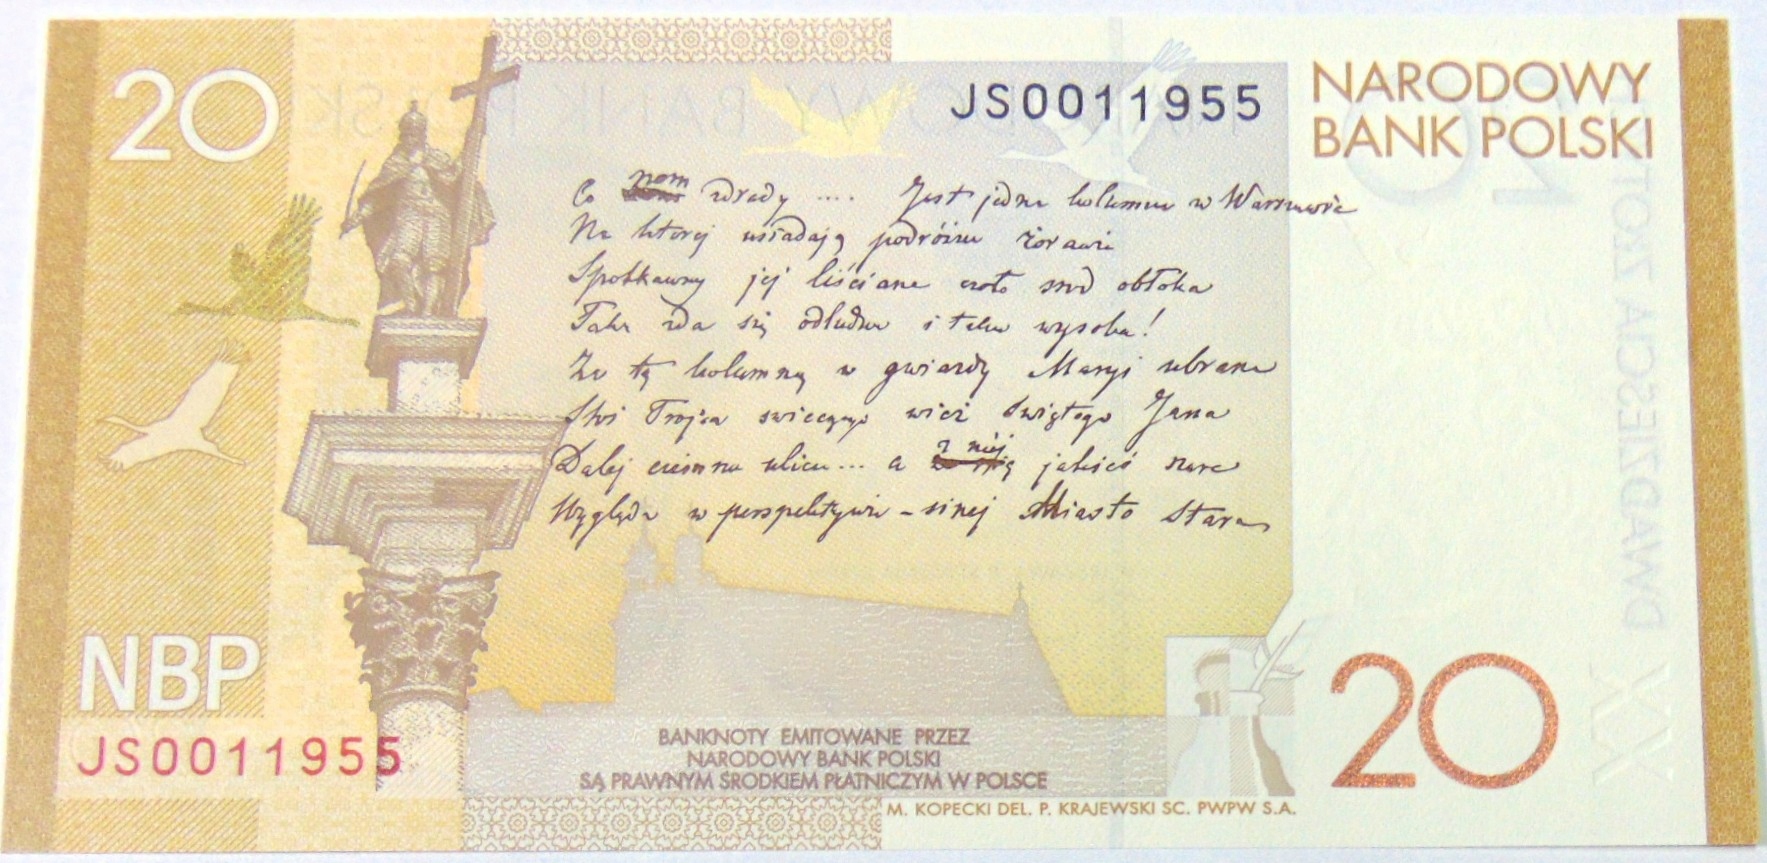 20
JS0011955
NARODOWY
BANK POLSKI
Co nam zdrady .... Jest jedna kolumna w Warszawie
Na ktorej usiadają podróżne żorawie
Spotkawszy jej liściane czoło środ obłoka
Taka zda się odludna i taka wysoka!
Za tą kolumną w gwiazdy Maryi ubrana
Stoi Trojca swiecących wież świętego Jana
Dalej ciemna ulica... a z niej jakieś szare
Wygląda w perspektywie – sinej Miasto Stare
NBP
JS0011955
BANKNOTY EMITOWANE PRZEZ
NARODOWY BANK POLSKI
SĄ PRAWNYM ŚRODKIEM PŁATNICZYM W POLSCE
M. KOPECKI DEL. P. KRAJEWSKI SC. PWPW S.A.
20
DWADZIEŚCIA ZŁOTYCH
XX